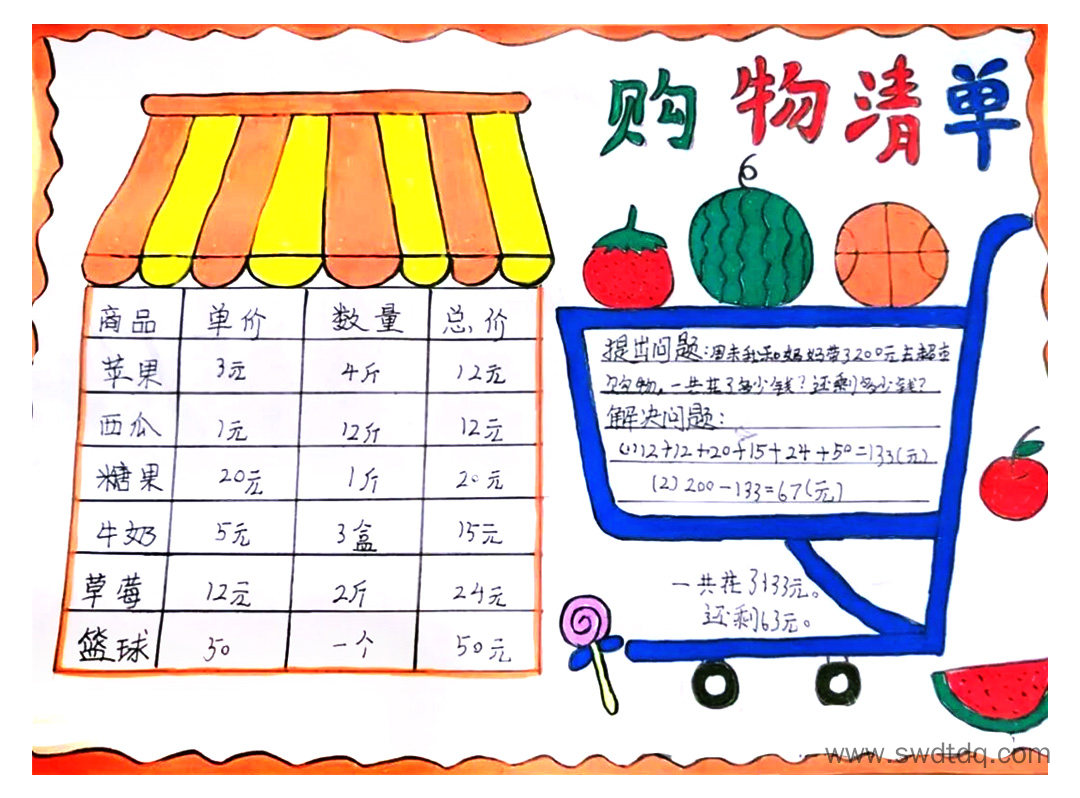 购物清单
商品 单价 数量 总价
苹果 3元 4斤 12元
西瓜 1元 12斤 12元
糖果 20元 1斤 20元
牛奶 5元 3盒 15元
草莓 12元 2斤 24元
篮球 50 一个 50元
提出问题:周末我和妈妈带了200元去超市
购物,一共花了多少钱?还剩多少钱?
解决问题:
(1)12+12+20+15+24+50=133(元)
(2)200-133=67(元)
一共花了133元。
还剩63元。
www.swdtdq.com